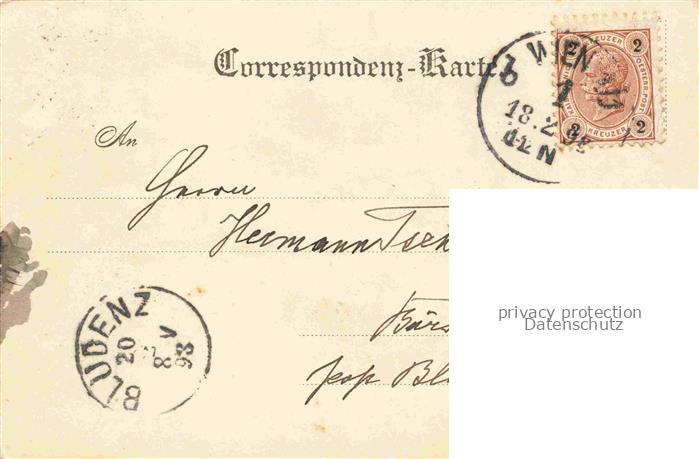 Correspondenz-Karte
WIEN
18.2
2 KREUZER 2
2 KREUZER 2
OESTERR. POST
An
Herrn
Hermann Tsch
Bürs
pop Bl
BLUDENZ
20
2
8 V
93
privacy protection
Datenschutz